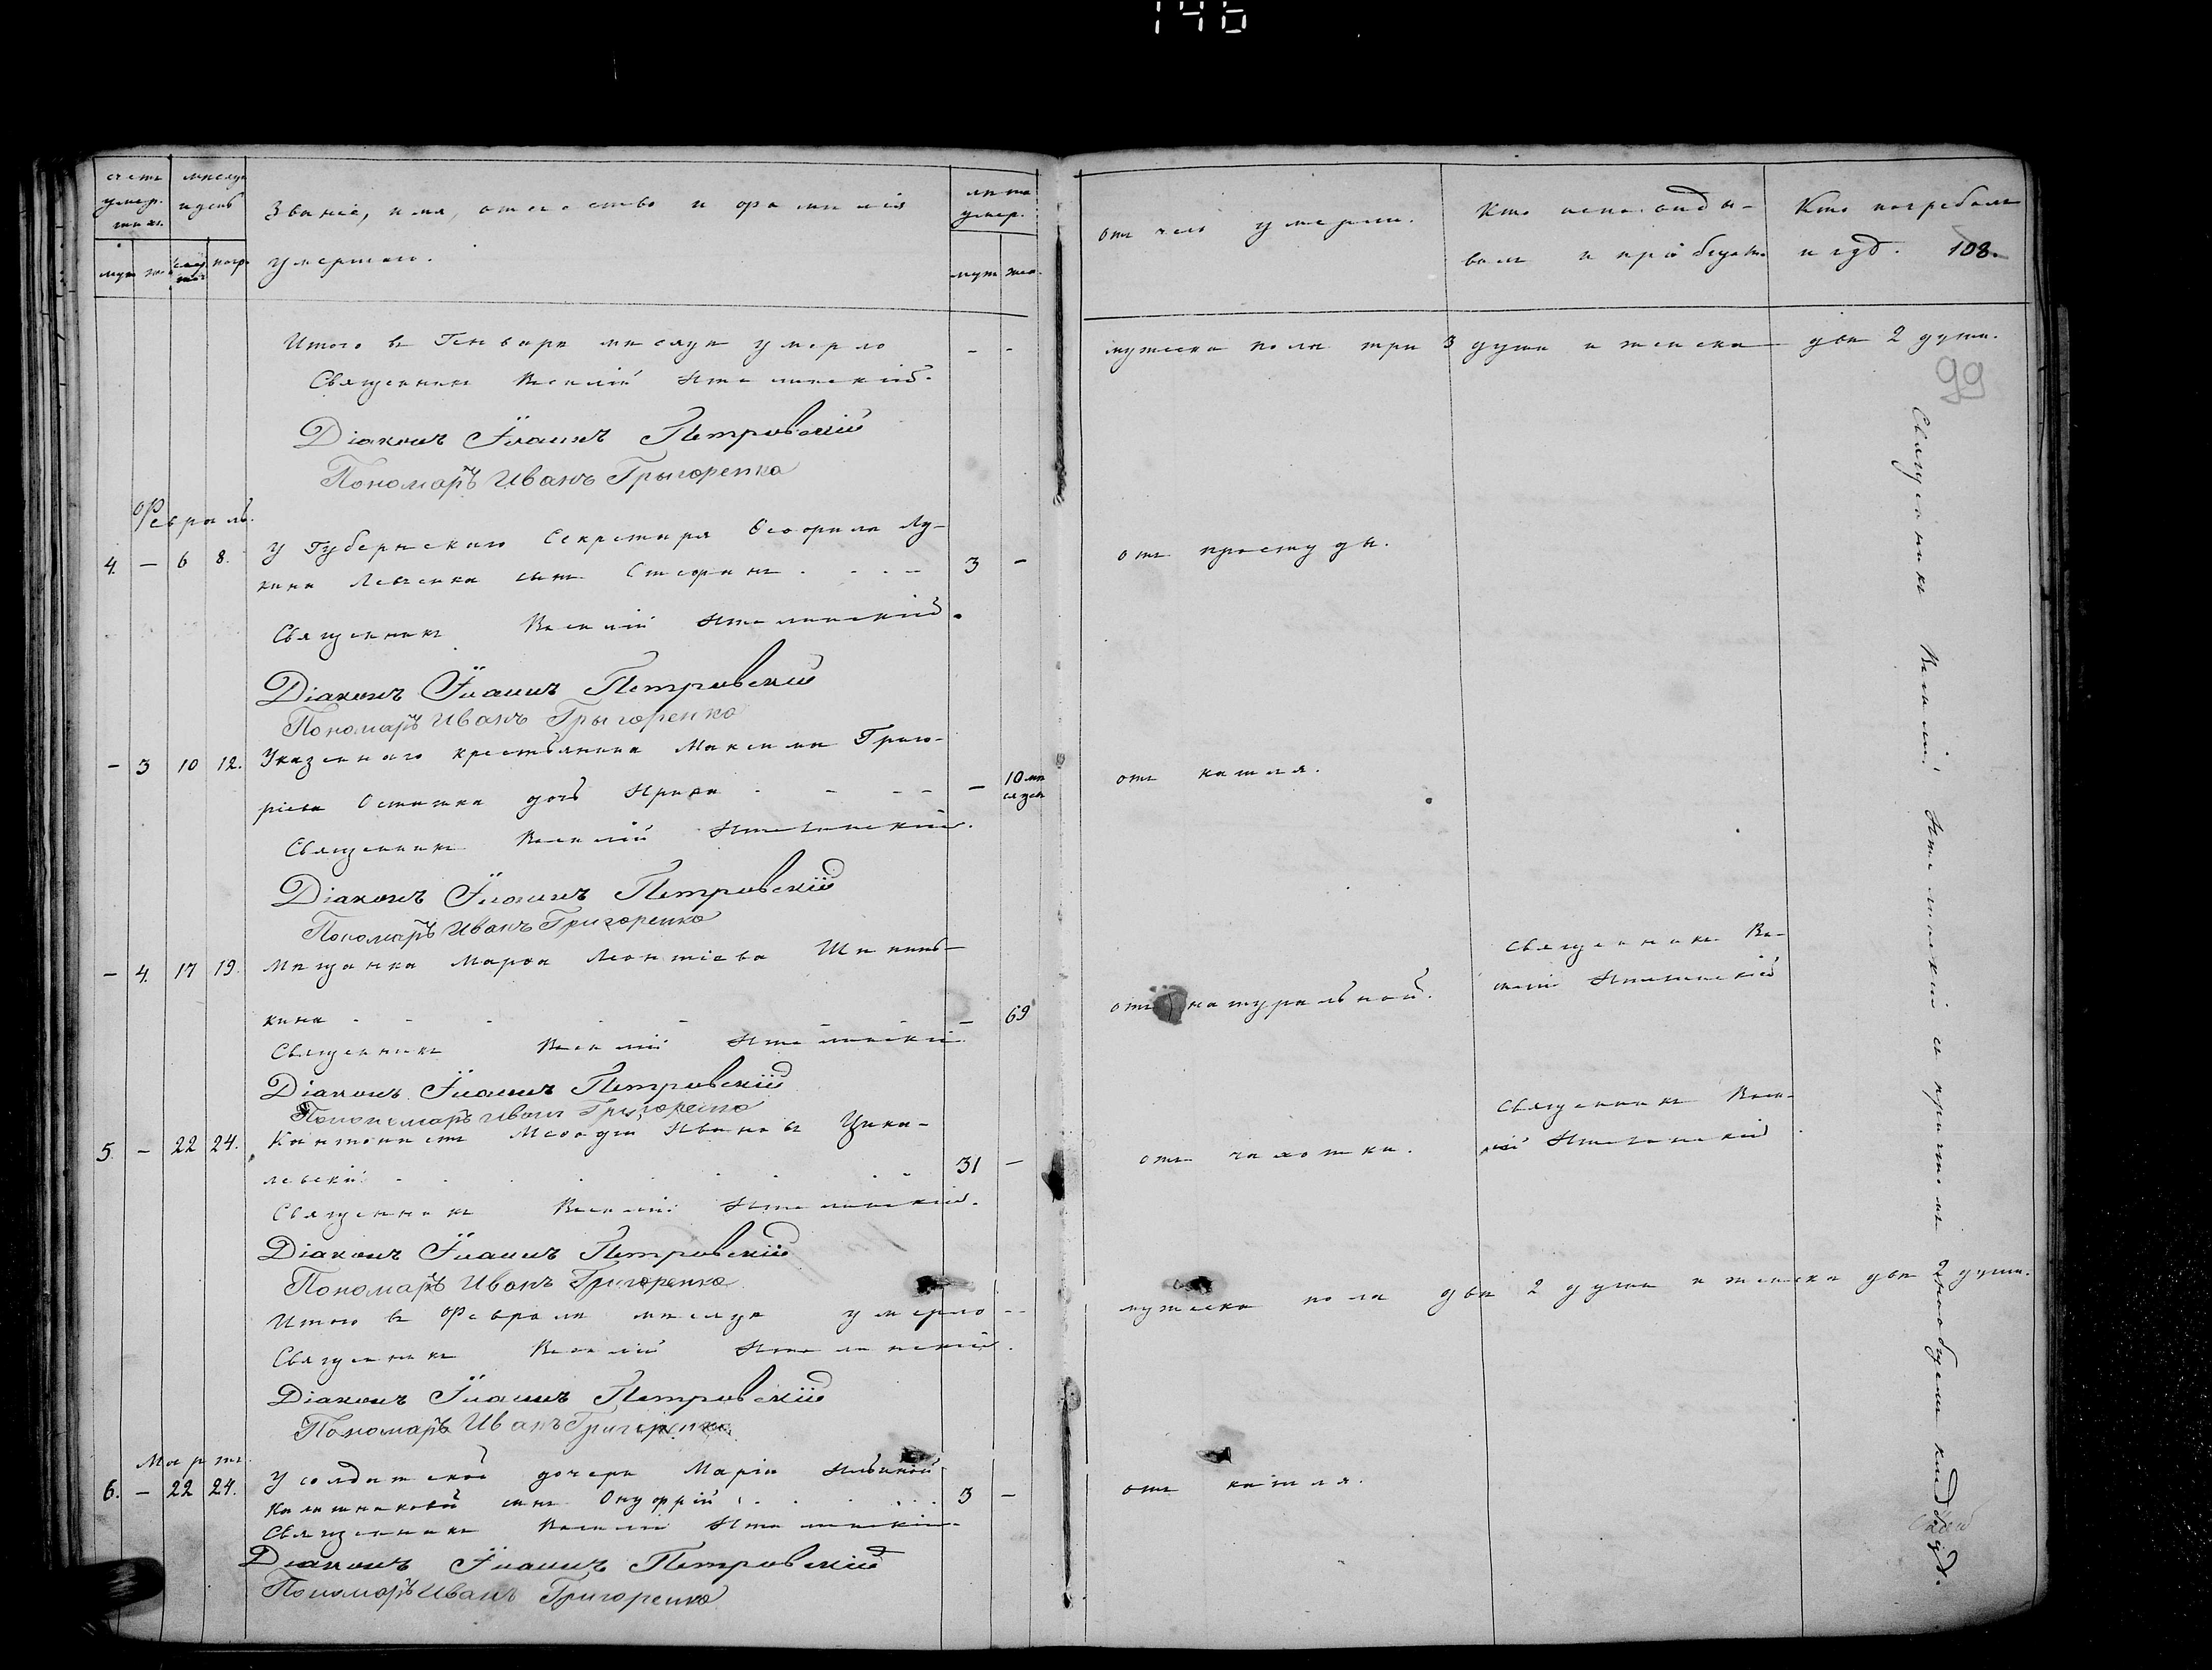 146
счетъ умер- шихъ.
месяцъ и день
Званіе, имя, отчество и фамилія
умершаго.
лета умер.
муж. жен. смер. погр.
муж. жен.
отъ чего умерли.
Кто исповеды-
валъ и пріобщалъ
Кто погребалъ
и гдѣ. 108.
Итого въ Генваре месяце умерло - -
мужеска пола три 3 души и женска две 2 души.
99
Священникъ Василій
Діаконъ Іоаннъ Петровскій
Пономарь Иванъ Грыгоренко
Февраль.
4. — 6 8. У Губернскаго Секретаря Ѳеофила Лу-
кина Левченка сынъ Стефанъ 3 —
отъ простуды.
Священникъ Василій
Діаконъ Іоаннъ Петровскій
Пономарь Иванъ Грыгоренко
— 3 10 12. Указеннаго крестьянина Максима Григо-
ріева дочь — 10 ме
сяцев
отъ кашля.
Священникъ Василій
Діаконъ Іоаннъ Петровскій
Пономарь Иванъ Григоренко
— 4. 17 19. Мещанка Марѳа Леонтіева
кина — 69
отъ натуральной.
Священникъ Ва-
силій
Священникъ Василій
Діаконъ Іоаннъ Петровскій
Понономарь Иванъ Григоренко
5. — 22 24. Кантонистъ Меѳодій Ивановъ
левскій 31 —
отъ чахотки.
Священникъ Васи-
лій
Священникъ Василій
Діаконъ Іоаннъ Петровскій
Пономарь Иванъ Григоренко
Итого въ Феврале месяце умерло - -
мужеска пола две 2 души и женска две 2 души.
Священникъ Василій
Діаконъ Іоаннъ Петровскій
Пономарь Иванъ Григоренко
Мартъ.
6. — 22 24. У солдатской дочери Маріи Ильиной
Калашниковой сынъ Онуфрій 3 —
отъ кашля.
Священникъ Василій
Діаконъ Іоаннъ Петровскій
Пономарь Иванъ Григоренко
Священникъ Василій съ причтомъ на кладбищѣ.